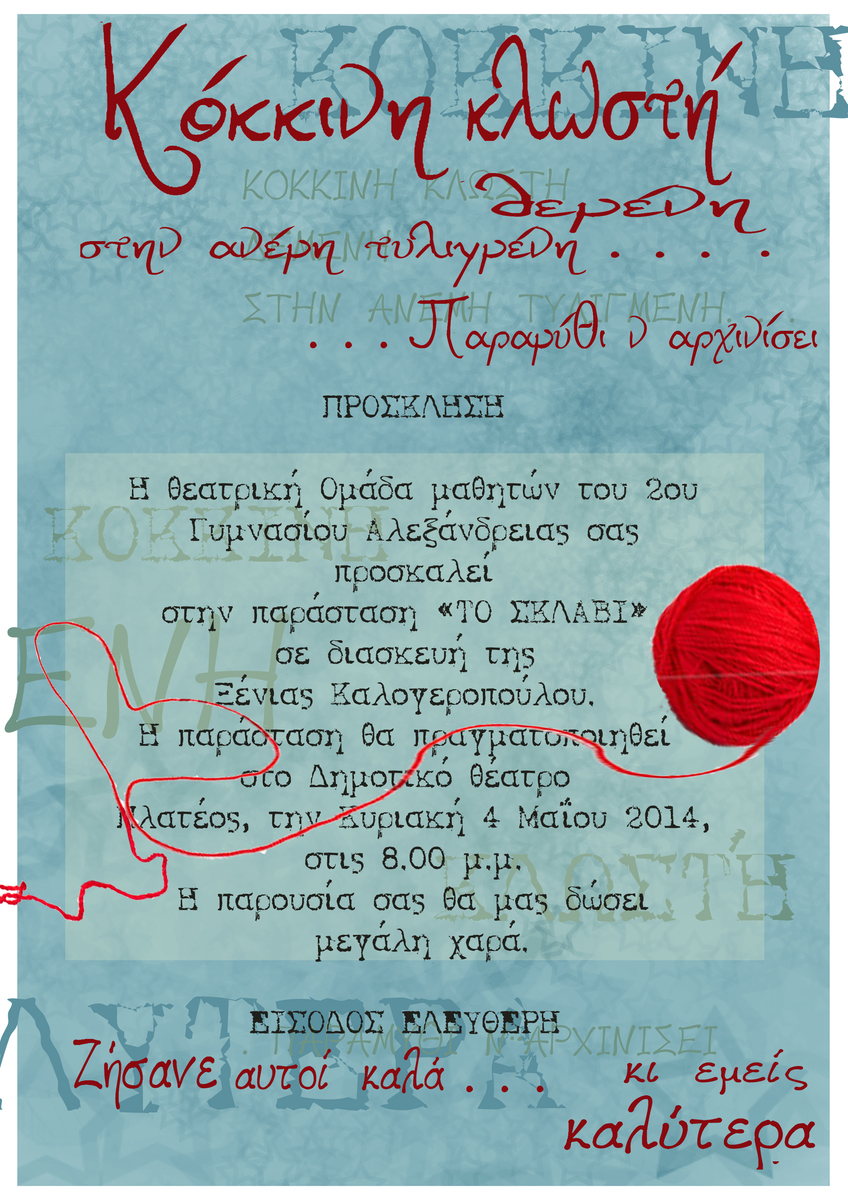 ΚΟΚΚΙΝΕ
Κόκκινη κλωστή
ΚΟΚΚΙΝΗ ΚΛΩΣΤΗ
δεμένη
στην ανέμη τυλιγμένη . . . .
ΔΕΜΕΝΗ
ΣΤΗΝ ΑΝΕΜΗ ΤΥΛΙΓΜΕΝΗ. . .
. . . Παραμύθι ν αρχινίσει
ΠΡΟΣΚΛΗΣΗ
Η θεατρική Ομάδα μαθητών του 2ου
ΚΟΚΚΙΝΗ
Γυμνασίου Αλεξάνδρειας σας
προσκαλεί
στην παράσταση «ΤΟ ΣΚΛΑΒΙ»
σε διασκευή της
ΕΝΗ
Ξένιας Καλογεροπούλου.
Η παράσταση θα πραγματοποιηθεί
στο Δημοτικό θέατρο
Πλατέος, την Κυριακή 4 Μαΐου 2014,
στις 8.00 μ.μ.
ΚΛΩΣΤΉ
Η παρουσία σας θα μας δώσει
μεγάλη χαρά.
ΕΙΣΟΔΟΣ ΕΛΕΥΘΕΡΗ
ΠΑΡΑΜΥΘΙ Ν ΑΡΧΙΝΙΣΕΙ
ΛΥΤΕΡΑ
Ζήσανε αυτοί καλά . . . κι εμείς
καλύτερα